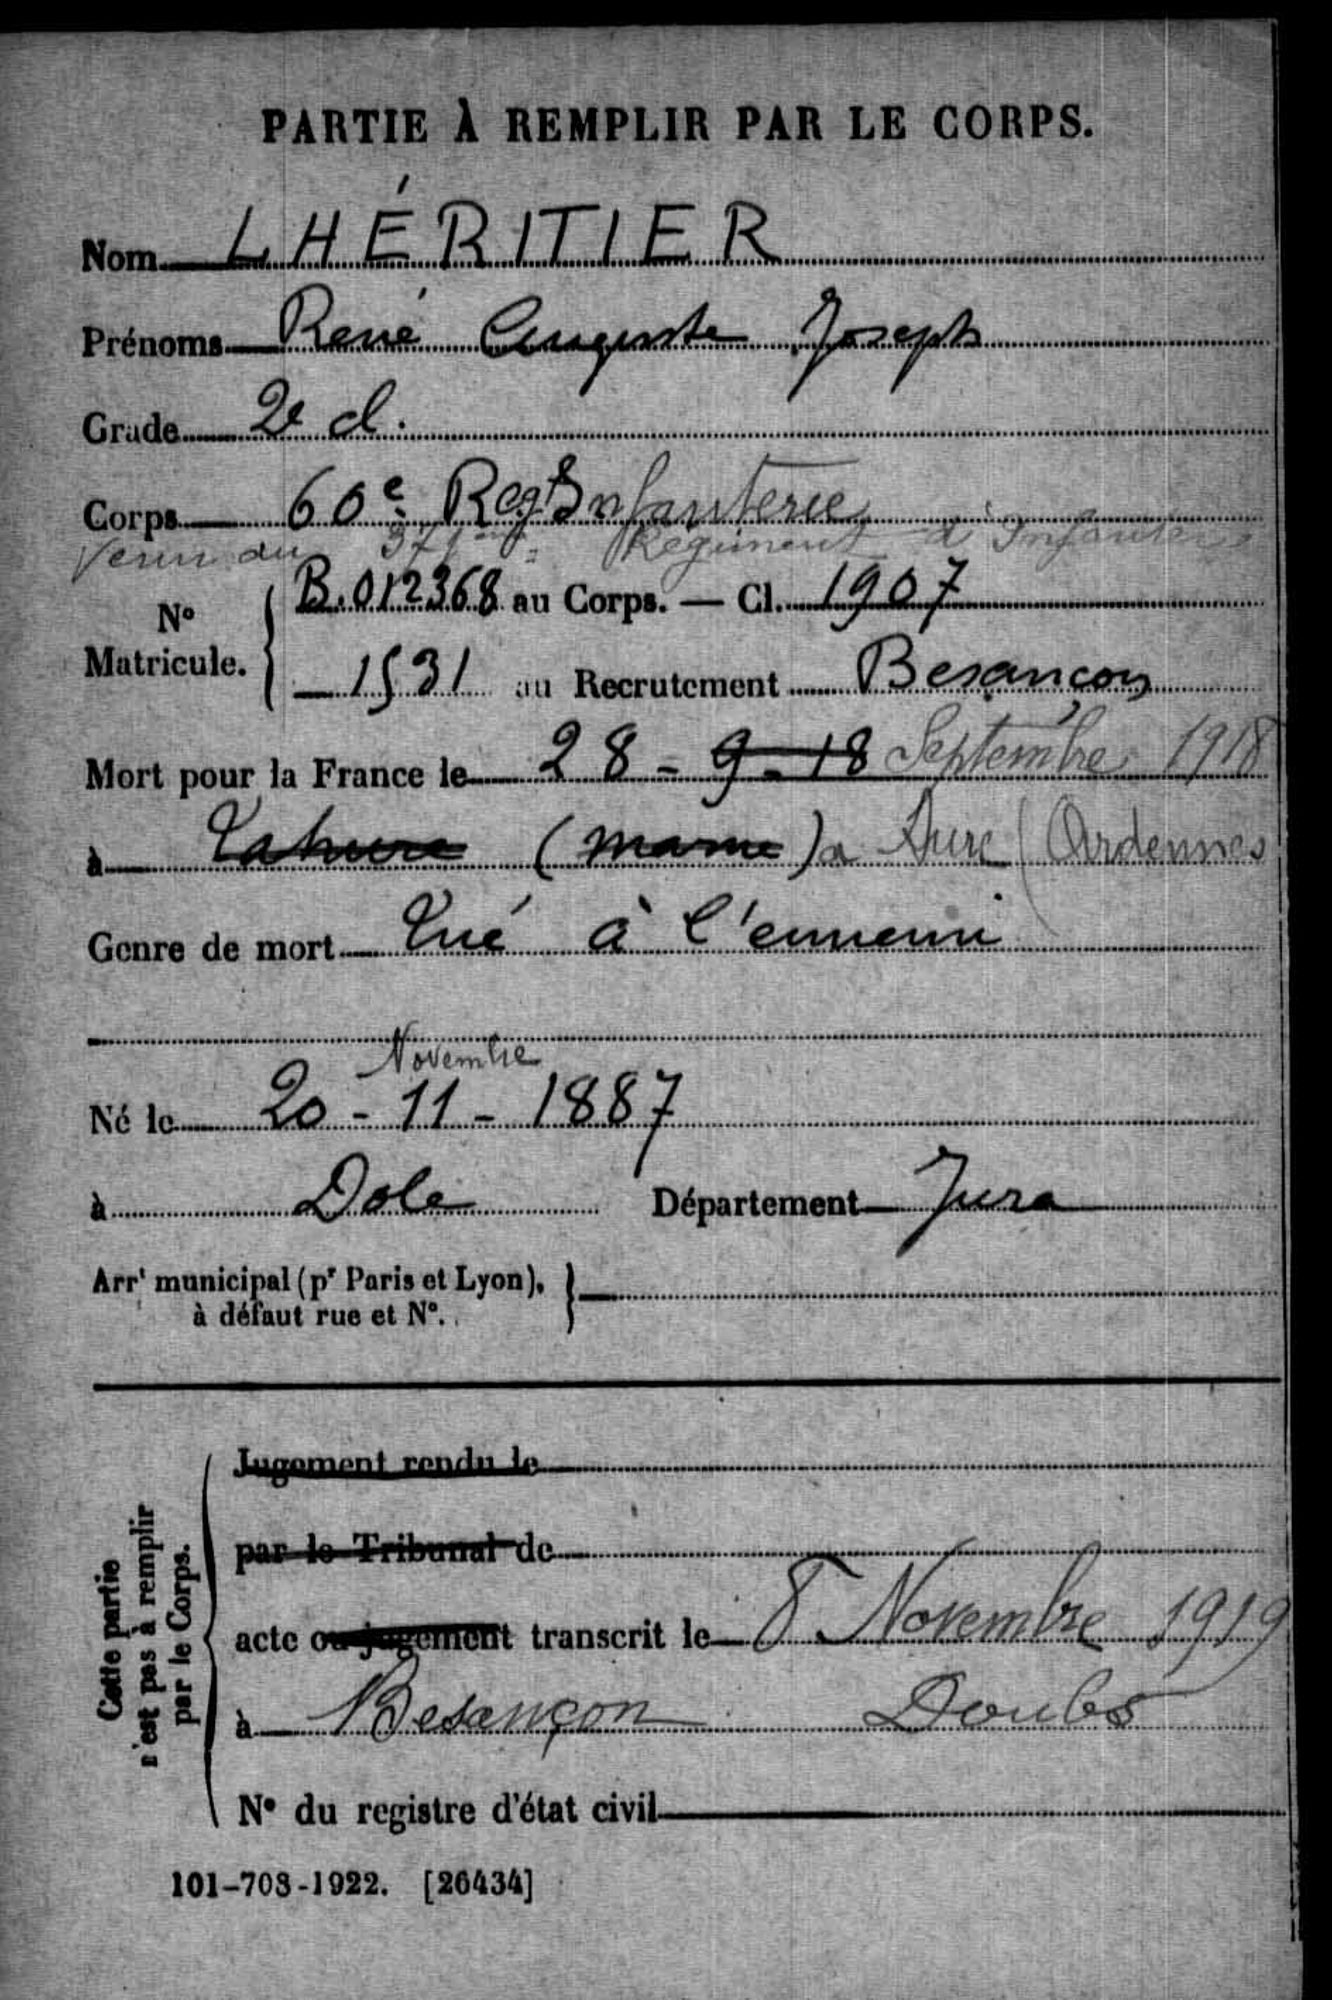 PARTIE À REMPLIR PAR LE CORPS.
Nom LHÉRITIER
Prénoms René Auguste Joseph
Grade 2e cl.
Corps 60e Regt Infanterie
Venu du 371ème Régiment d'Infanterie
N° Matricule. { B.012368 au Corps. — Cl. 1907
1531 au Recrutement Besançon
Mort pour la France le 28 - 9 - 18 Septembre 1918
à Tahure (Marne) à Aure (Ardennes
Genre de mort Tué à l'ennemi
Novembre
Né le 20 - 11 - 1887
à Dole Département Jura
Arrt municipal (pr Paris et Lyon), }
à défaut rue et N°.
Cette partie
n'est pas à remplir
par le Corps.
Jugement rendu le
par le Tribunal de
acte ou jugement transcrit le 8 Novembre 1919
à Besançon Doubs
N° du registre d'état civil
101-708-1922. [26434]